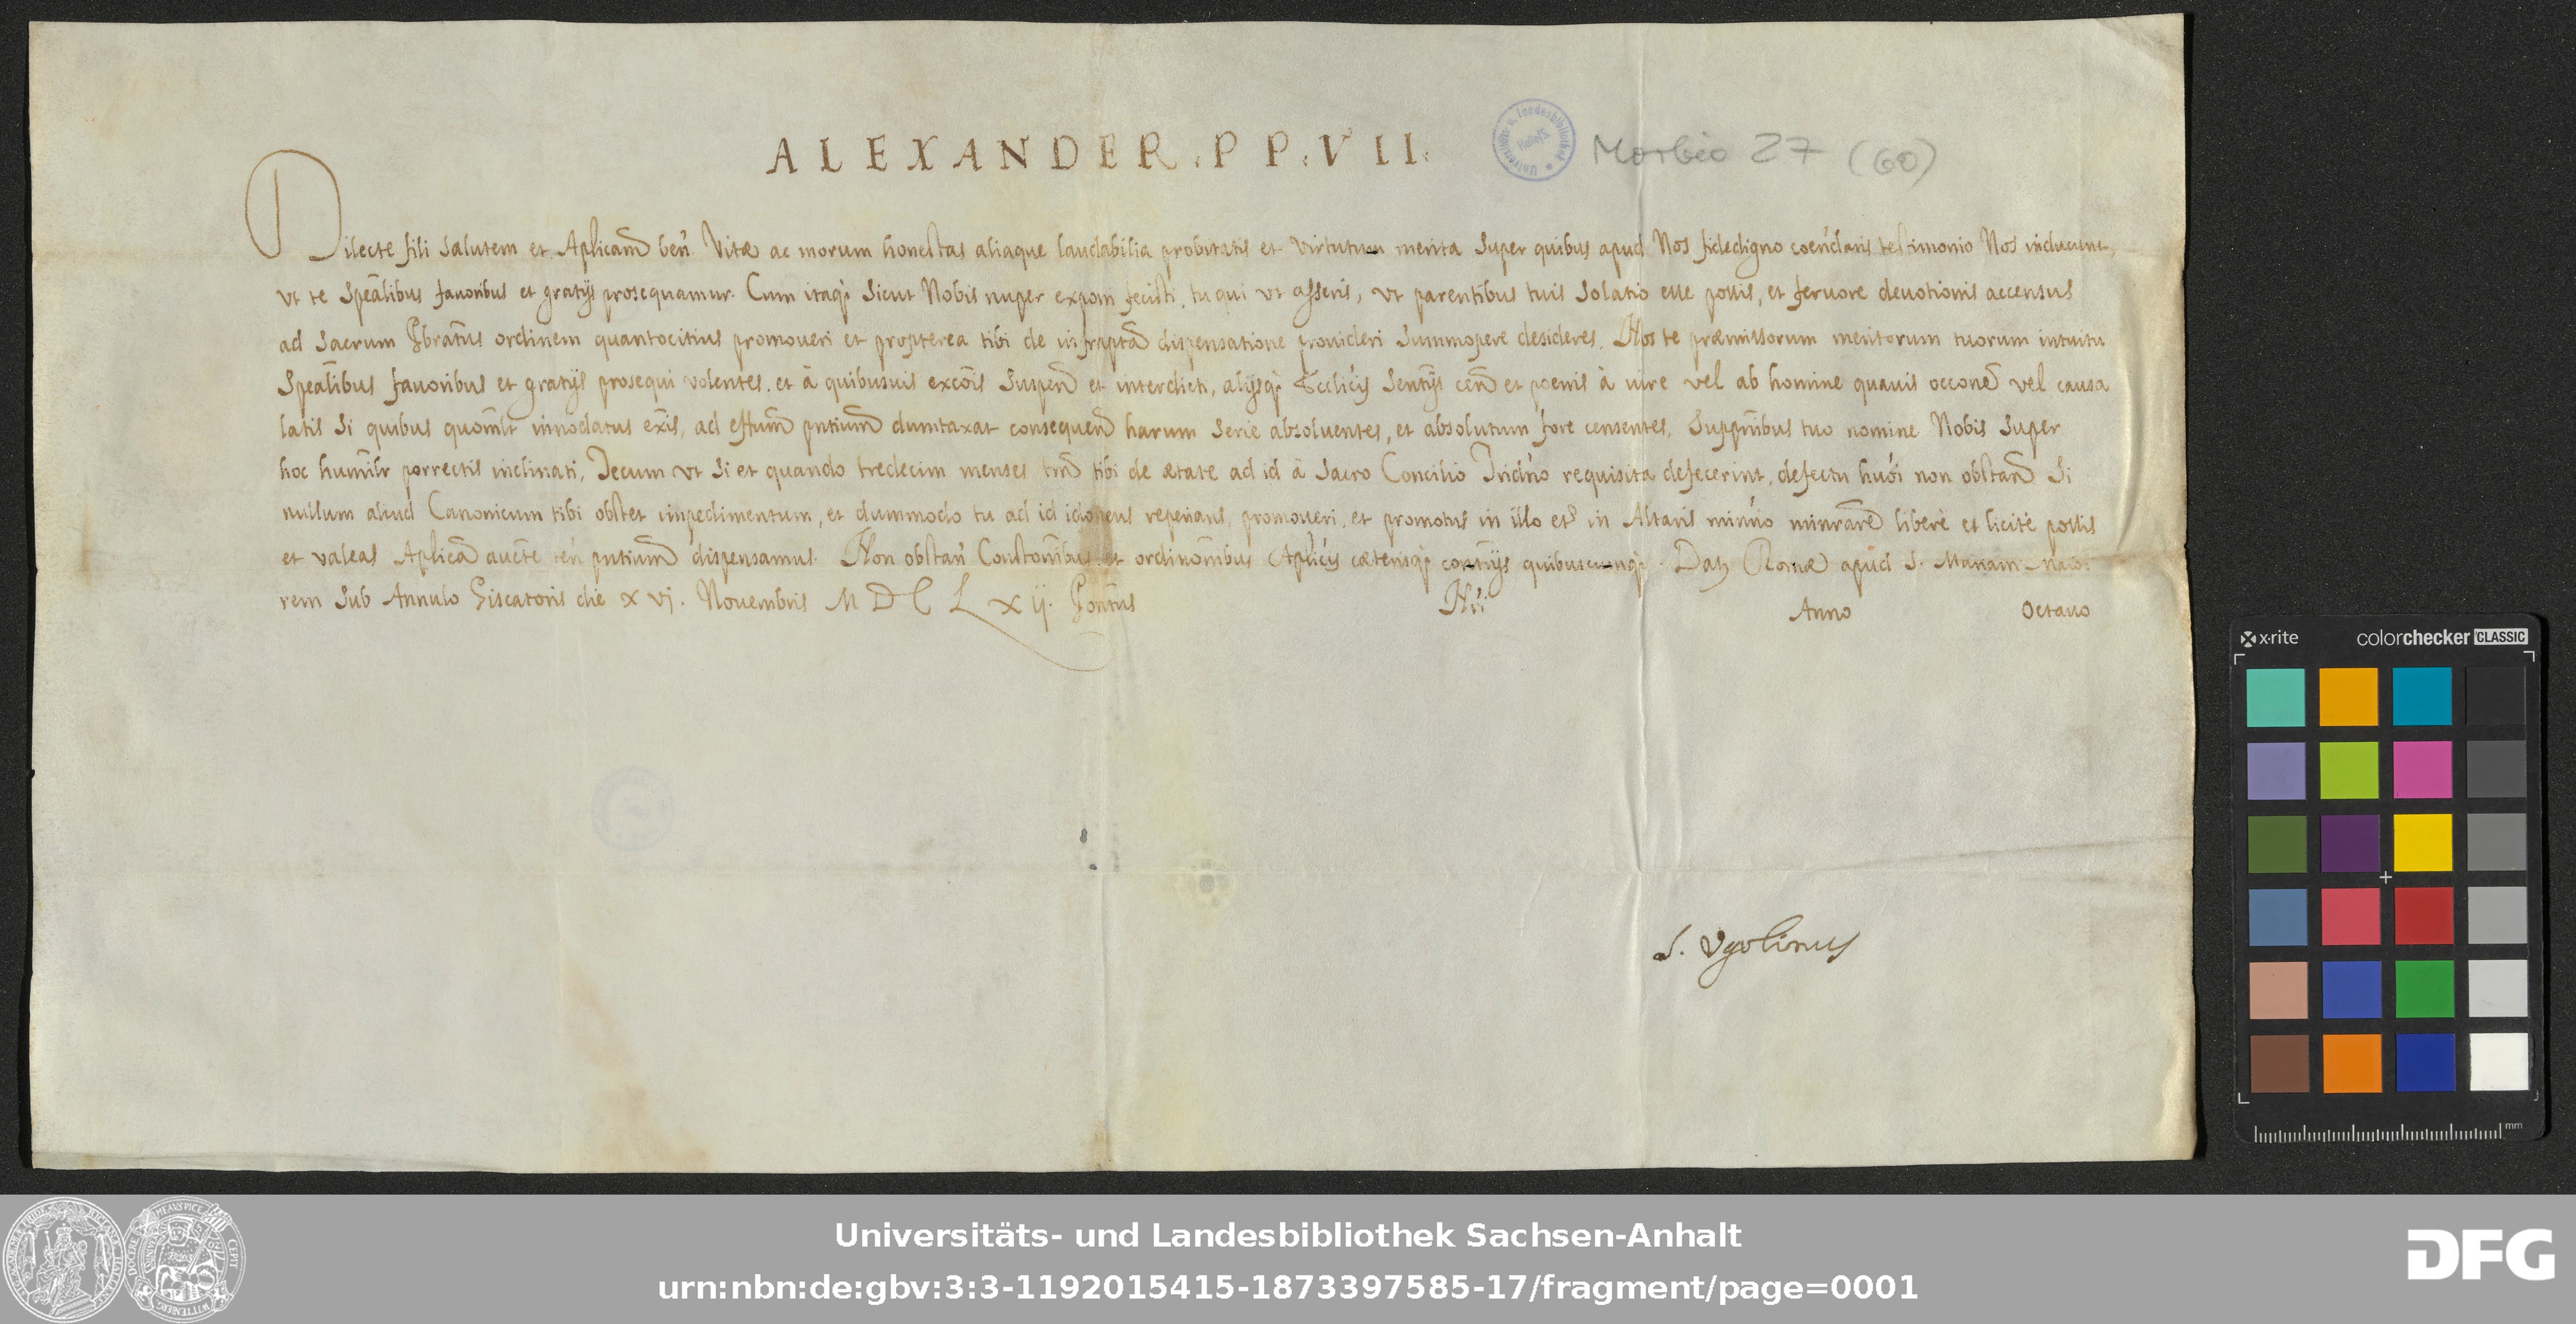 ALEXANDER. PP. VII.
Universitäts- u. Landesbibliothek Halle/S.
Morbio 27 (60)
Dilecte fili salutem et Aplicam̄ ben̄. Vitæ ac morum honestas aliaque laudabilia probitatis et virtutum merita super quibus apud Nos fidedigno com̄endaris testimonio Nos inducunt,
vt te speālibus fauoribus et gratijs prosequamur. Cum itaq; sicut Nobis nuper exponi fecisti, tu qui vt asseris, vt parentibus tuis solatio esse possis, et feruore deuotionis accensus
ad sacrum Pbratus ordinem quantocitius promoueri et propterea tibi de infraptā dispensatione prouideri summopere desideres. Nos te præmissorum meritorum tuorum intuitu
speālibus fauoribus et gratijs prosequi volentes, et à quibusuis excōis suspen̄ et interdicti, alijsq; Ecclicis sentijs cen̄ et poenis à iure vel ab homine quauis occone vel causa
latis si quibus quomlt innodatus exis, ad effum pntium dumtaxat consequen̄ harum serie absoluentes, et absolutum fore censentes, suppnibus tuo nomine Nobis super
hoc humilr porrectis inclinati, Tecum vt si et quando tredecim menses tm̄ tibi de ætate ad id à sacro Concilio Tridno requisita defecerint, defectu huōi non obstan̄ si
nullum aliud Canonicum tibi obstet impedimentum, et dummodo tu ad id idoneus reperiaris, promoueri, et promotus in illo et in Altaris minrio minrare liberè et licitè possis
et valeas Aplicā aucte ten̄ pntium dispensamus. Non obstan̄ Constonibus et ordinonibus Aplicis cæterisq; contrijs quibuscunq;. Dat; Romæ apud S. Mariam Maio-
rem sub Annulo Piscatoris die xvj. Nouembris MDCLXij. Pontus Nri Anno Octauo
S. Vgolinus
x·rite colorchecker CLASSIC
mm
Universitäts- und Landesbibliothek Sachsen-Anhalt
urn:nbn:de:gbv:3:3-1192015415-1873397585-17/fragment/page=0001
DFG